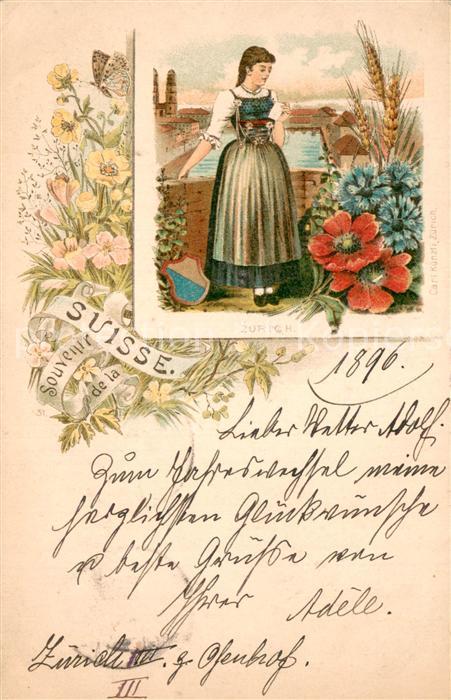 ZÜRICH.
Carl Künzli, Zürich.
Souvenir
de la
SUISSE.
31
1896.
Lieber Vetter Adolf.
Zum Jahreswechsel meine
herzlichsten Glückwünsche
u beste Grüsse von
Ihrer Adèle.
Zürich III. z.
III